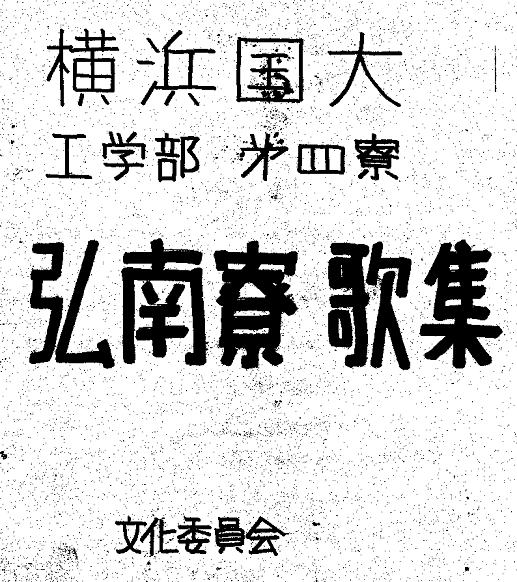 横浜国大
工学部 第四寮
弘南寮 歌集
文化委員会